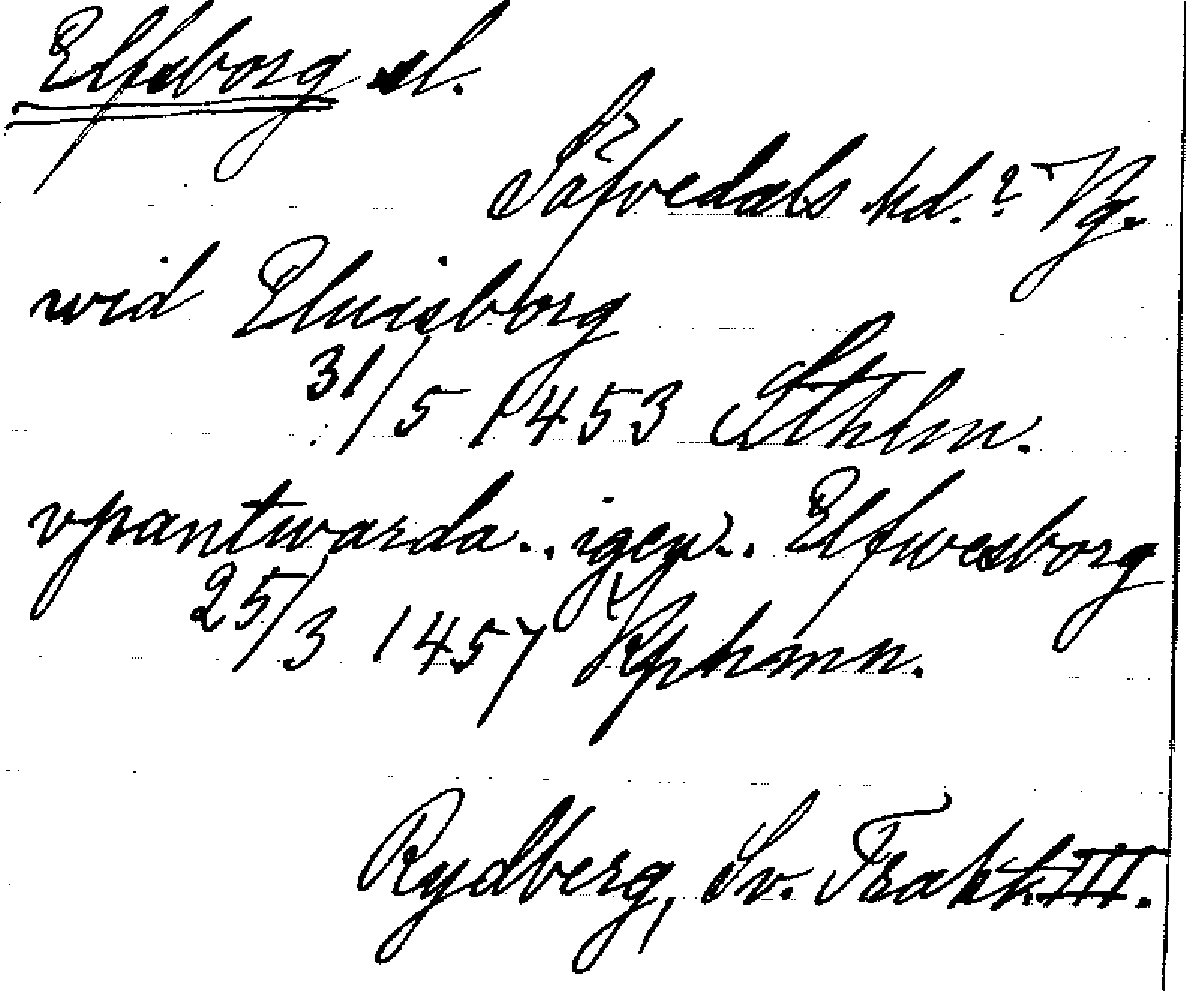 Elfsborg sl.
Säfvedals hd.? Vg.
wid Eluisborg
31/5 1453 Sthlm.
vpantwarda.. igen.. Elfwesborg
25/3 1457 Kphmn.
Rydberg, Sv. Trakt. III.